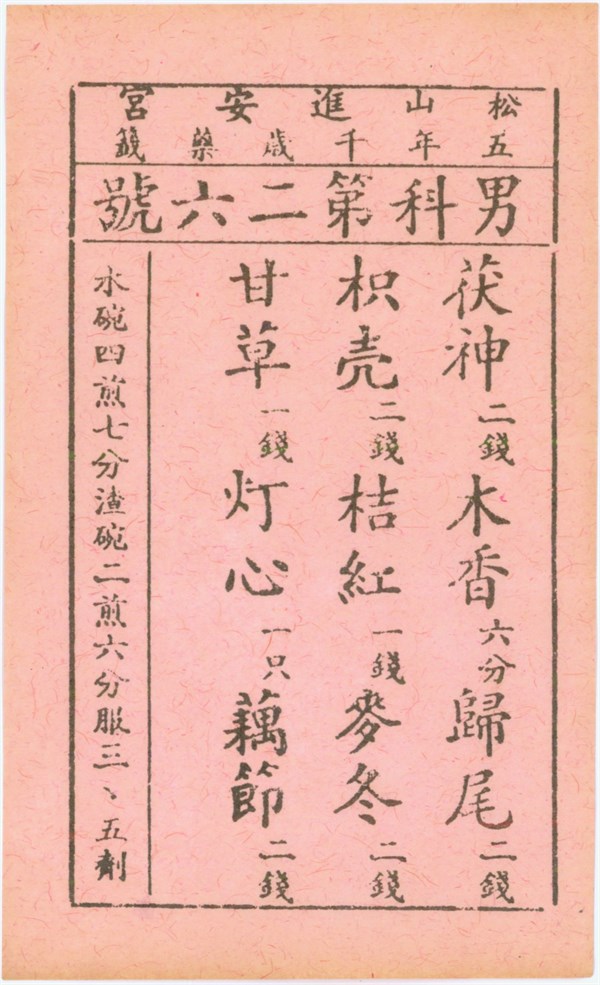 松山進安宮
五年千歳藥籤
男科第二六號
茯神二錢木香六分歸尾二錢
枳壳二錢桔紅一錢麥冬二錢
甘草一錢灯心一只藕節二錢
水碗四煎七分渣碗二煎六分服三、五劑